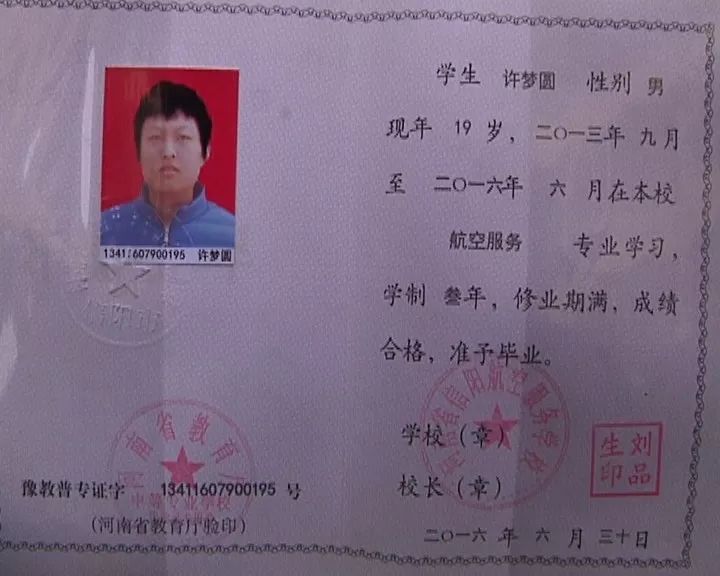 学生 许梦圆 性别 男
现年 19 岁，二〇一三年 九 月
至 二〇一六年 六 月在本校
航空服务 专业学习，
学制 叁年，修业期满，成绩
合格，准予毕业。
学校（章）
校长（章）
二〇一六 年 六 月 三十日
河南省信阳航空服务学校
刘品生印
13411607900195 许梦圆
信阳市
河南省教育厅
中等专业学校
豫教普专证字 13411607900195 号
（河南省教育厅验印）